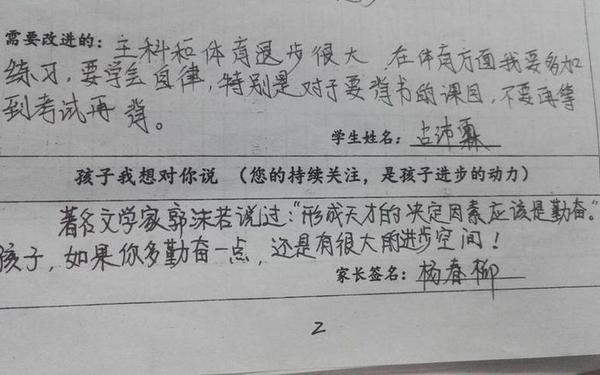 需要改进的：主科和体育退步很大 在体育方面我要多加
练习，要学会自律，特别是对于要背书的课目，不要再等
到考试再背。
学生姓名：古沛霖
孩子我想对你说 （您的持续关注，是孩子进步的动力）
著名文学家郭沫若说过：“形成天才的决定因素应该是勤奋。”
孩子，如果你多勤奋一点，还是有很大的进步空间！
家长签名：杨春柳
2